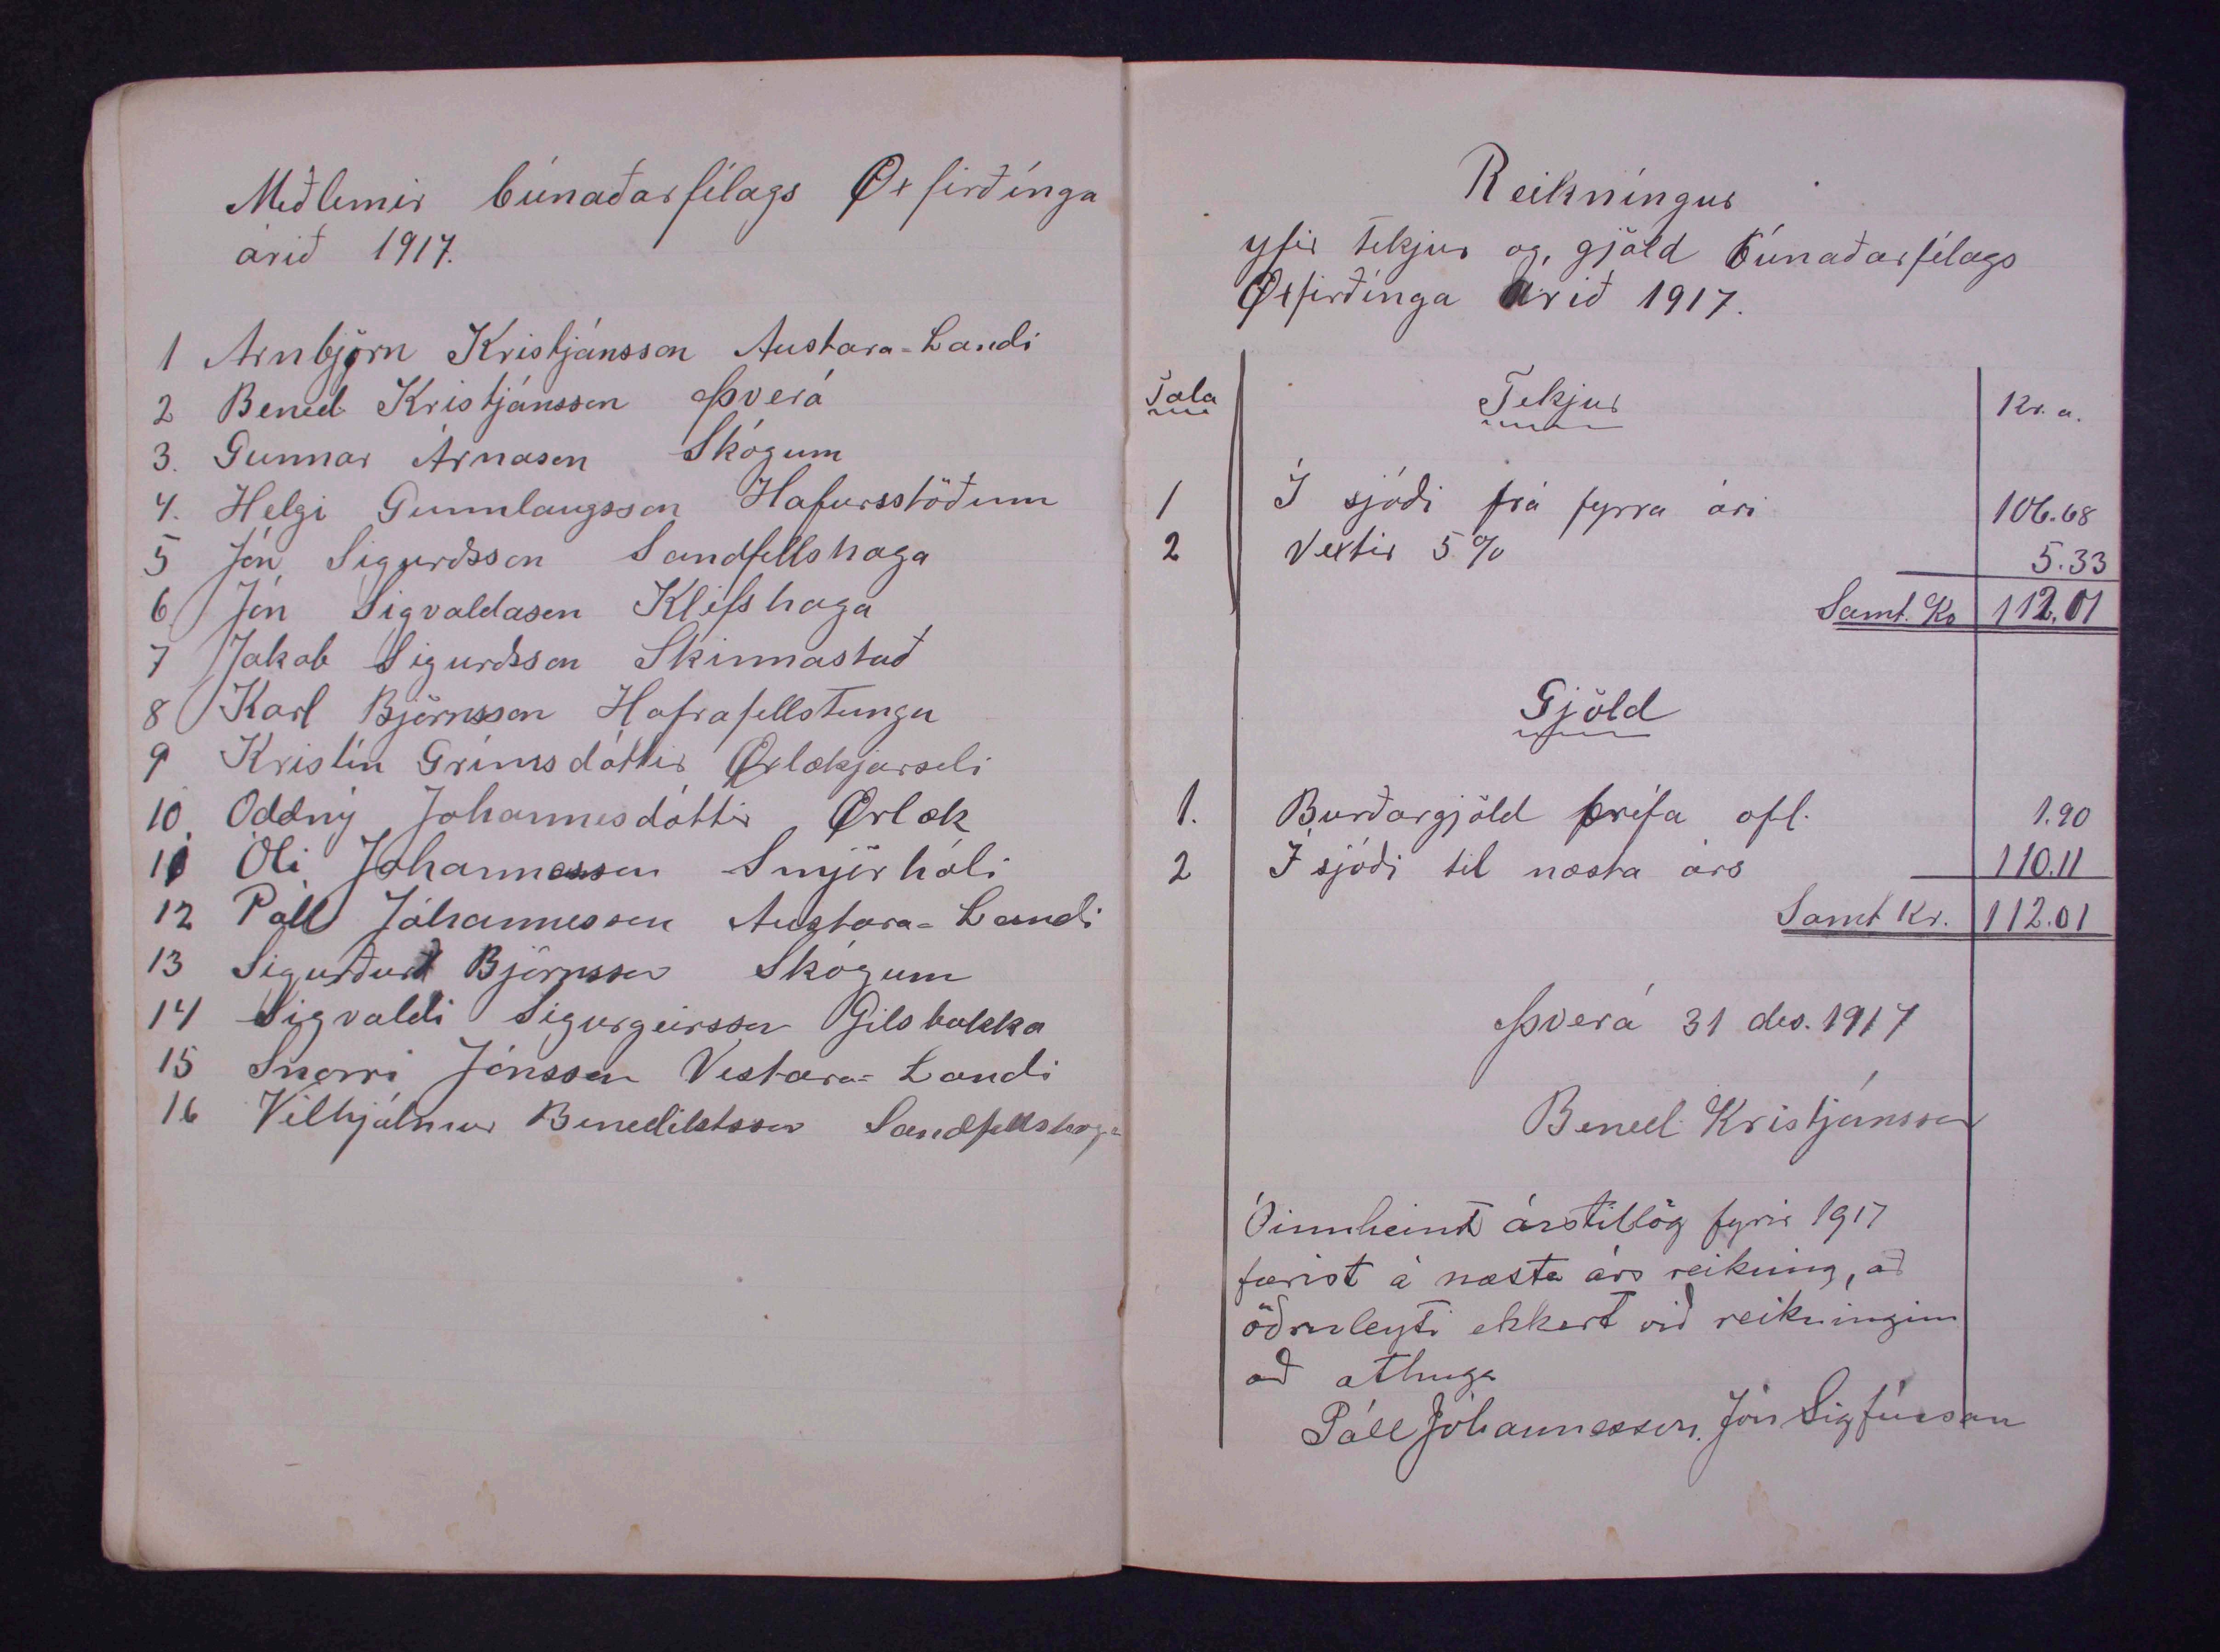 Meðlemir búnaðarfélags Øxfirðínga
árið 1917.
1 Arnbjörn Kristjánsson Austara-Landi
2 Bened. Kristjánsson Þverá
3. Gunnar Árnason Skógum
4. Helgi Gunnlaugsson Hafursstöðum
5 Jón Sigurðsson Sandfellshaga
6 Jón Sigvaldason Klifshaga
7 Jakob Sigurðsson Skinnastað
8 Karl Björnsson Hafrafellstungu
9 Kristín Grímsdóttir Øxlækjarseli
10. Oddný Jóhannesdóttir Ørlæk
11 Óli Jóhannesson Smjörhóli
12 Páll Jóhannesson Austara-Landi
13 Sigurður Björnsson Skógum
14 Sigvaldi Sigurgeirsson Gilsbakka
15 Snorri Jónsson Vestara-Landi
16 Vilhjálmur Benediktsson Sandfellshaga
Reikníngur
yfir tekjur og gjöld búnaðarfélags
Øxfirðínga árið 1917.
Tala Tekjur Kr. a.
1 Í sjóði frá fyrra ári 106.68
2 Vextir 5% 5.33
Samt. Kr 112.01
Gjöld
1. Burðargjöld bréfa ofl. 1.90
2 Í sjóði til næsta árs 110.11
Samt Kr. 112.01
Þverá 31 des. 1917
Bened. Kristjánsson
Óinnheimt árstillög fyrir 1917
færist á næsta árs reikning, að
öðruleyti ekkert við reikninginn
að athuga
Páll Jóhannesson. Jón Sigfússon